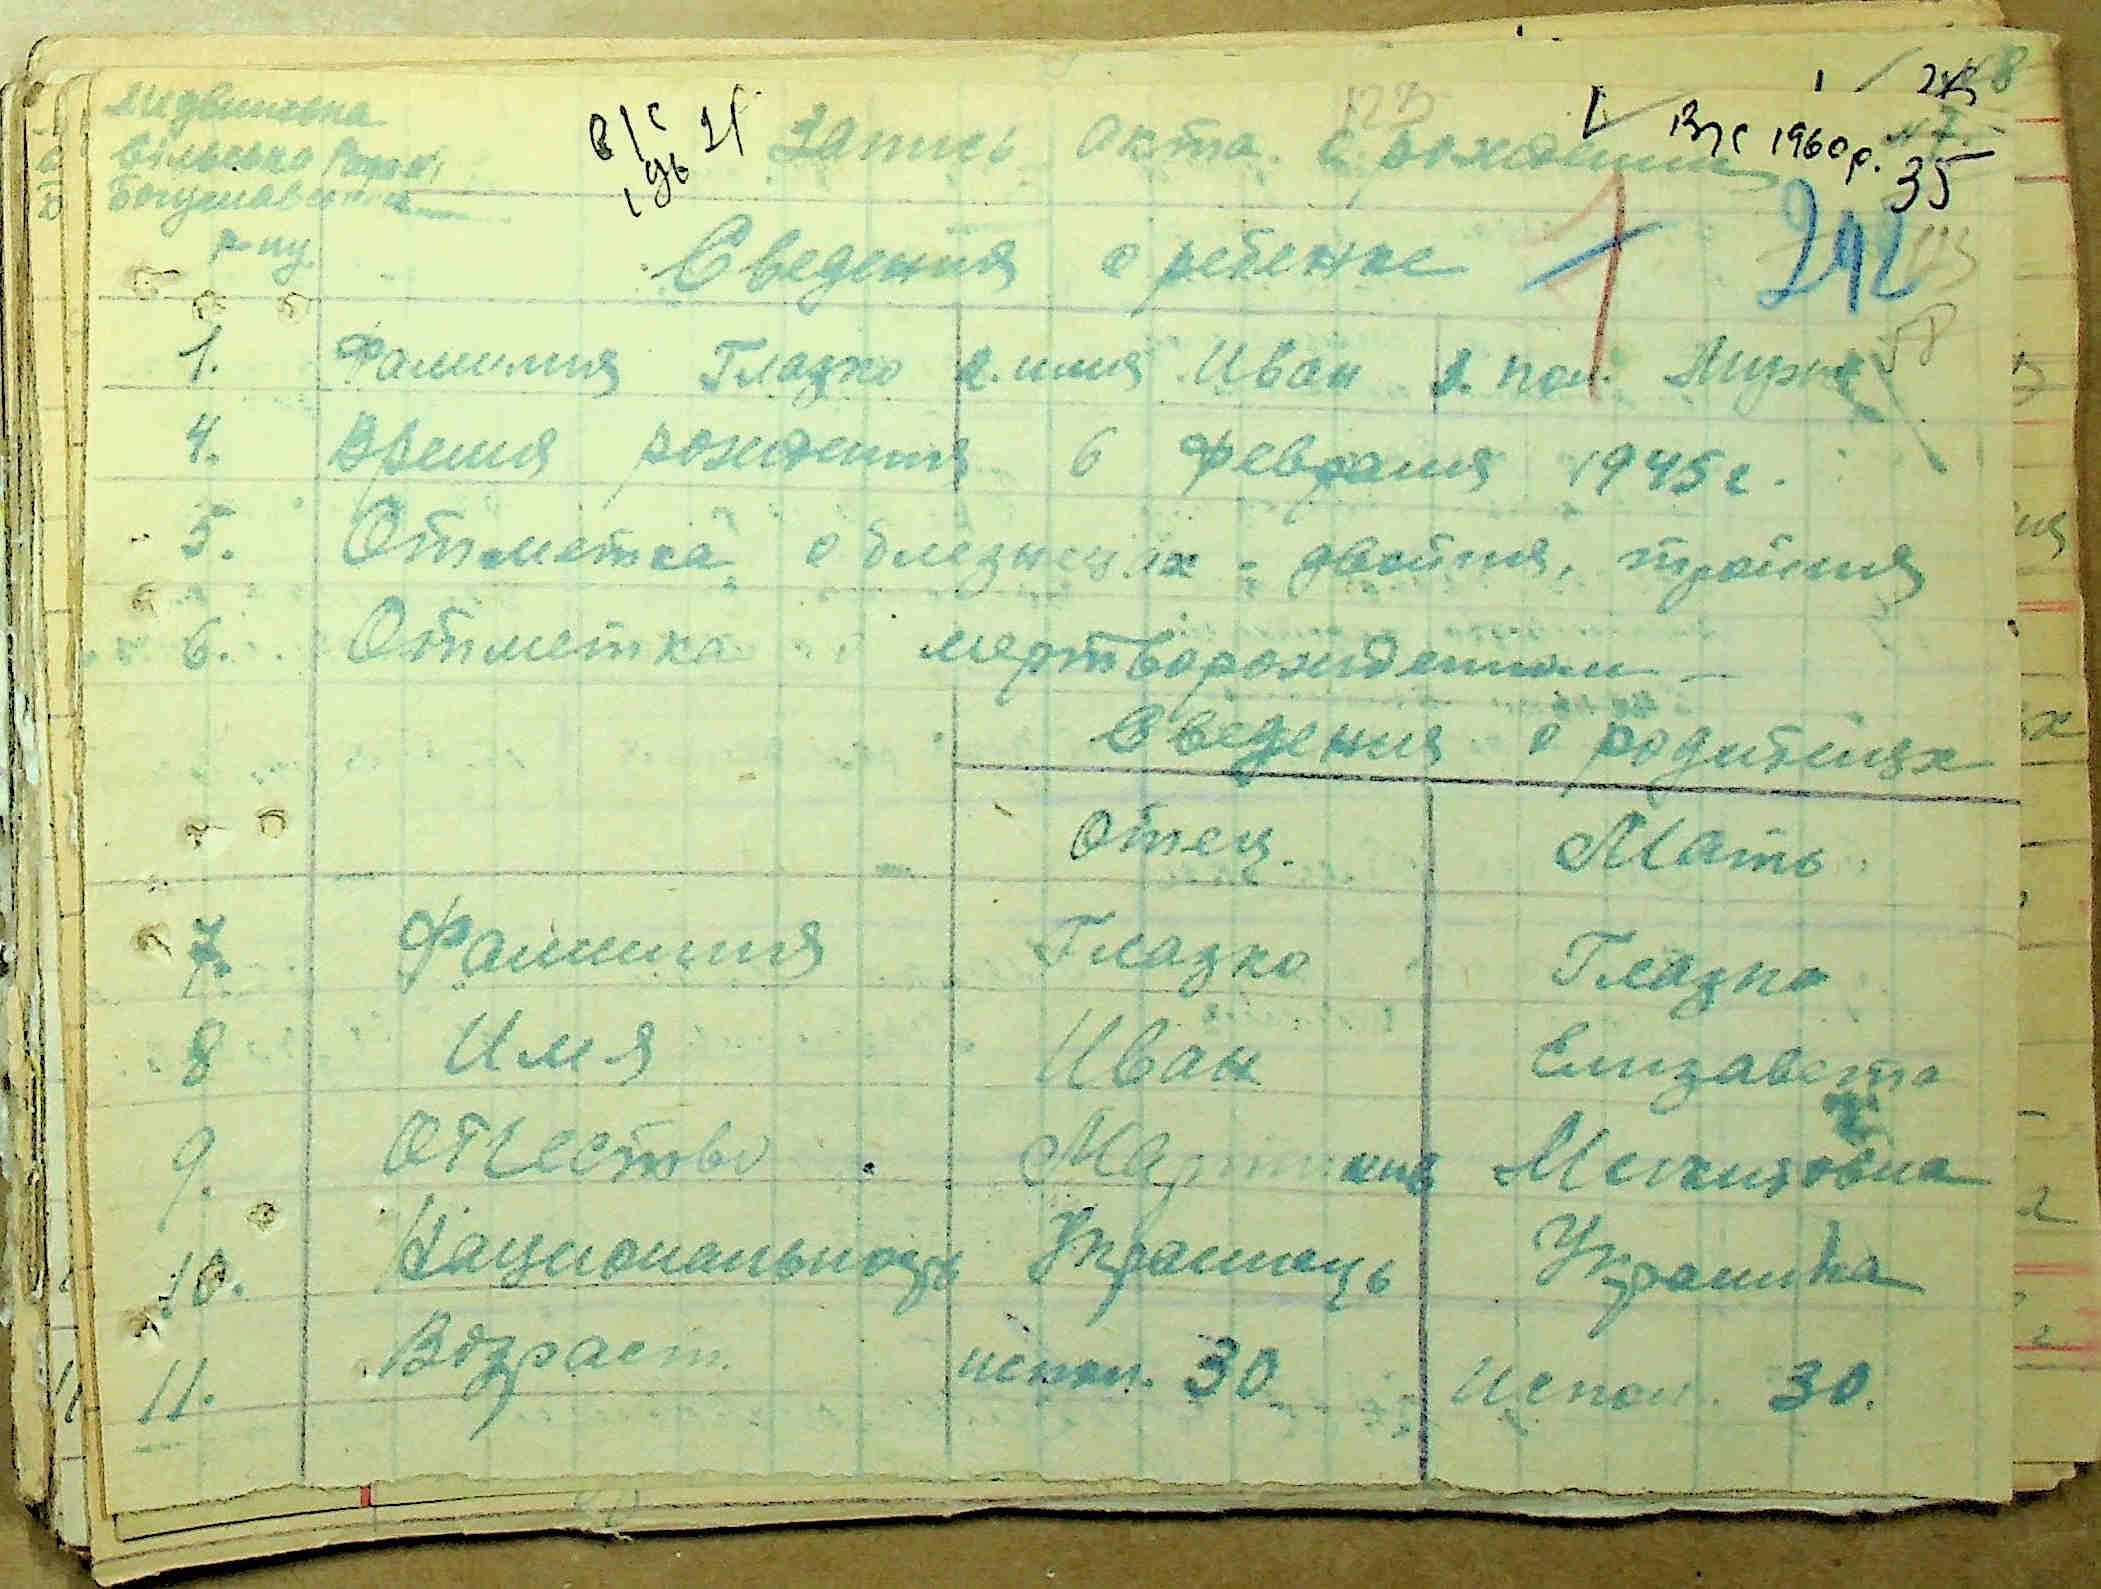 Медвинська
сільська Рада
Богуславського
р-ну.
Запись акта о рождении
в/с
ІЧ 1960р. № 7.
35
Сведения о ребенке
1 242
1. Фамилия Гладко 2. имя Иван 3. пол. Мужск
4. Время рождения 6 февраля 1945 г.
5. Отметка о близнецах - двойня, тройня
6. Отметка о мертворожденном -
Сведения о родителях
Отец. Мать.
7. Фамилия Гладко Гладко
8 Имя Иван Елизавета
9. Отчество Мартинов
10. Национальность Украинець Украинка
11. Возраст. испол. 30 Испол. 30.